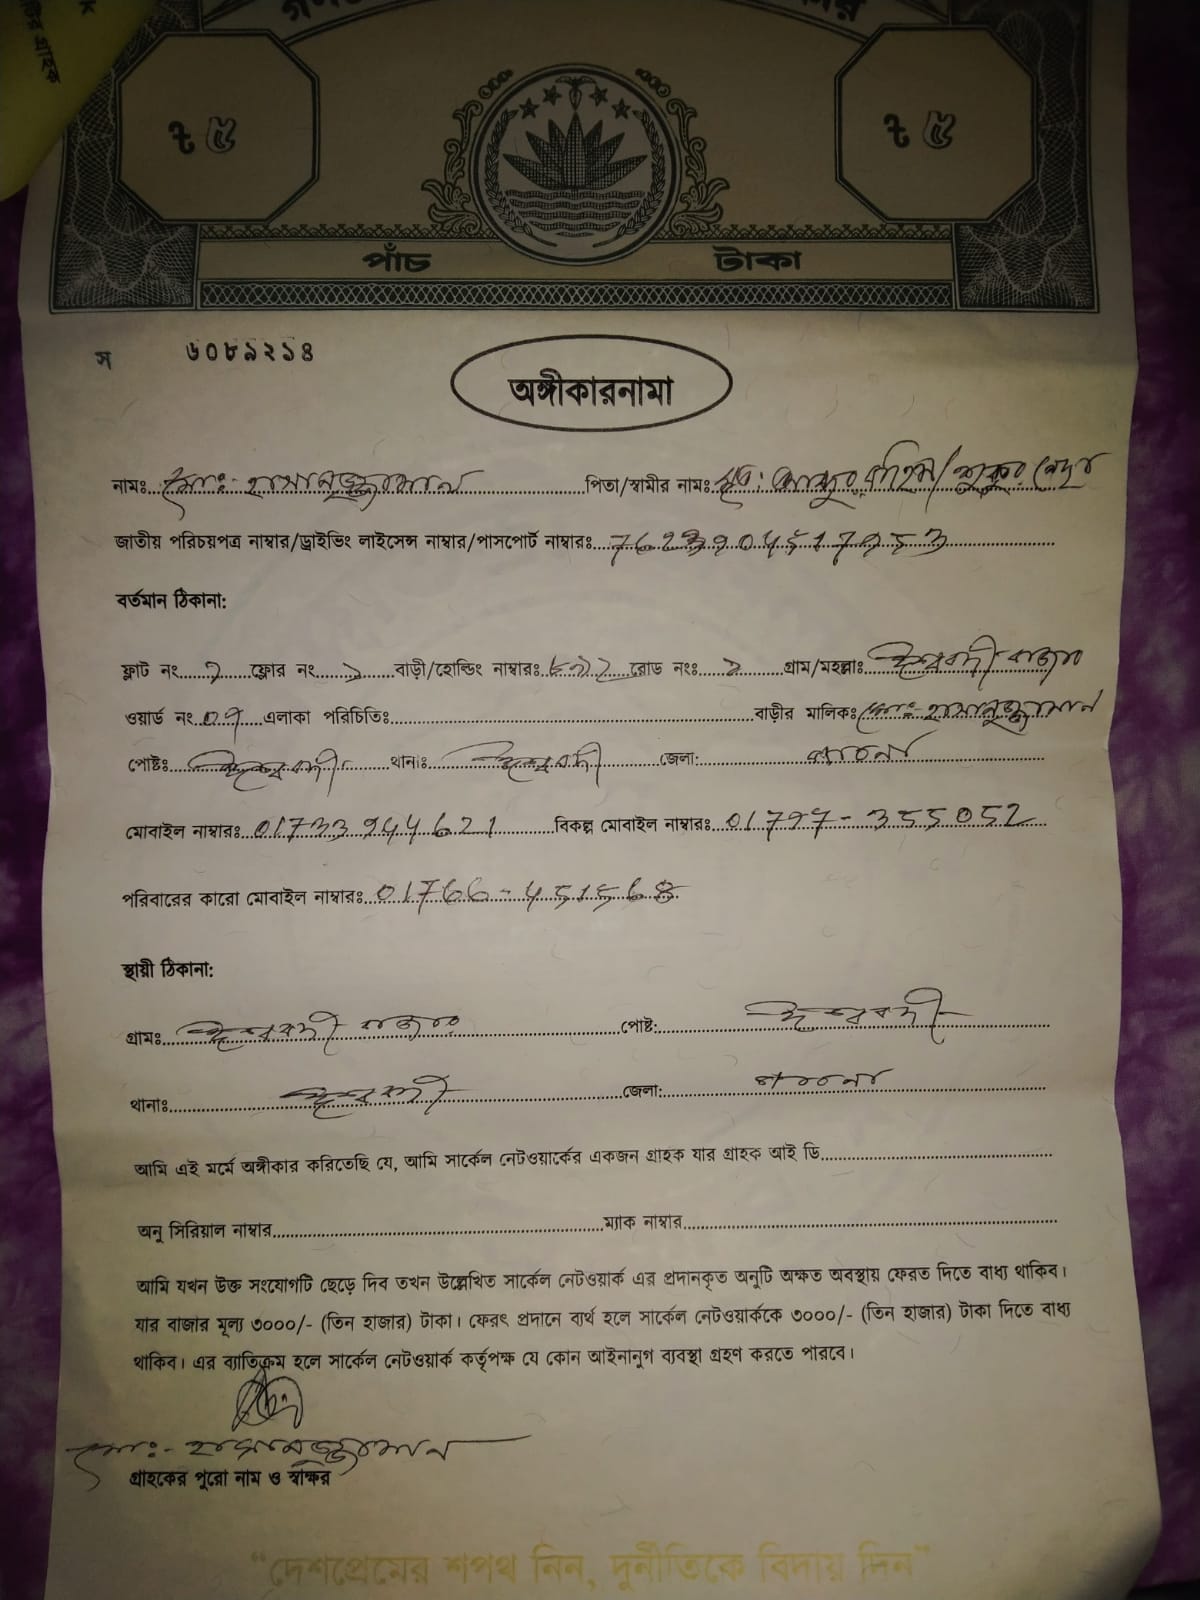 ৳ ৫ ৳ ৫
পাঁচ টাকা
স ৬০৮৯২১৪
অঙ্গীকারনামা
নামঃ মোঃ- হাসানুজ্জামান পিতা/স্বামীর নামঃ মৃতঃ
জাতীয় পরিচয়পত্র নাম্বার/ড্রাইভিং লাইসেন্স নাম্বার/পাসপোর্ট নাম্বারঃ
বর্তমান ঠিকানা:
ফ্লাট নং ফ্লোর নং বাড়ী/হোল্ডিং নাম্বারঃ রোড নংঃ গ্রাম/মহল্লাঃ ঈশ্বরদী বাজার
ওয়ার্ড নং এলাকা পরিচিতিঃ বাড়ীর মালিকঃ মোঃ- হাসানুজ্জামান
পোষ্টঃ ঈশ্বরদী থানাঃ ঈশ্বরদী জেলা: পাবনা
মোবাইল নাম্বারঃ 01733944621 বিকল্প মোবাইল নাম্বারঃ 01797-355052
পরিবারের কারো মোবাইল নাম্বারঃ 01766-451568
স্থায়ী ঠিকানা:
গ্রামঃ ঈশ্বরদী বাজার পোষ্ট: ঈশ্বরদী
থানাঃ ঈশ্বরদী জেলা: পাবনা
আমি এই মর্মে অঙ্গীকার করিতেছি যে, আমি সার্কেল নেটওয়ার্কের একজন গ্রাহক যার গ্রাহক আই ডি
অনু সিরিয়াল নাম্বার ম্যাক নাম্বার
আমি যখন উক্ত সংযোগটি ছেড়ে দিব তখন উল্লেখিত সার্কেল নেটওয়ার্ক এর প্রদানকৃত অনুটি অক্ষত অবস্থায় ফেরত দিতে বাধ্য থাকিব।
যার বাজার মূল্য ৩০০০/- (তিন হাজার) টাকা। ফেরৎ প্রদানে ব্যর্থ হলে সার্কেল নেটওয়ার্ককে ৩০০০/- (তিন হাজার) টাকা দিতে বাধ্য
থাকিব। এর ব্যাতিক্রম হলে সার্কেল নেটওয়ার্ক কর্তৃপক্ষ যে কোন আইনানুগ ব্যবস্থা গ্রহণ করতে পারবে।
মোঃ- হাসানুজ্জামান
গ্রাহকের পুরো নাম ও স্বাক্ষর
"দেশপ্রেমের শপথ নিন, দুর্নীতিকে বিদায় দিন"